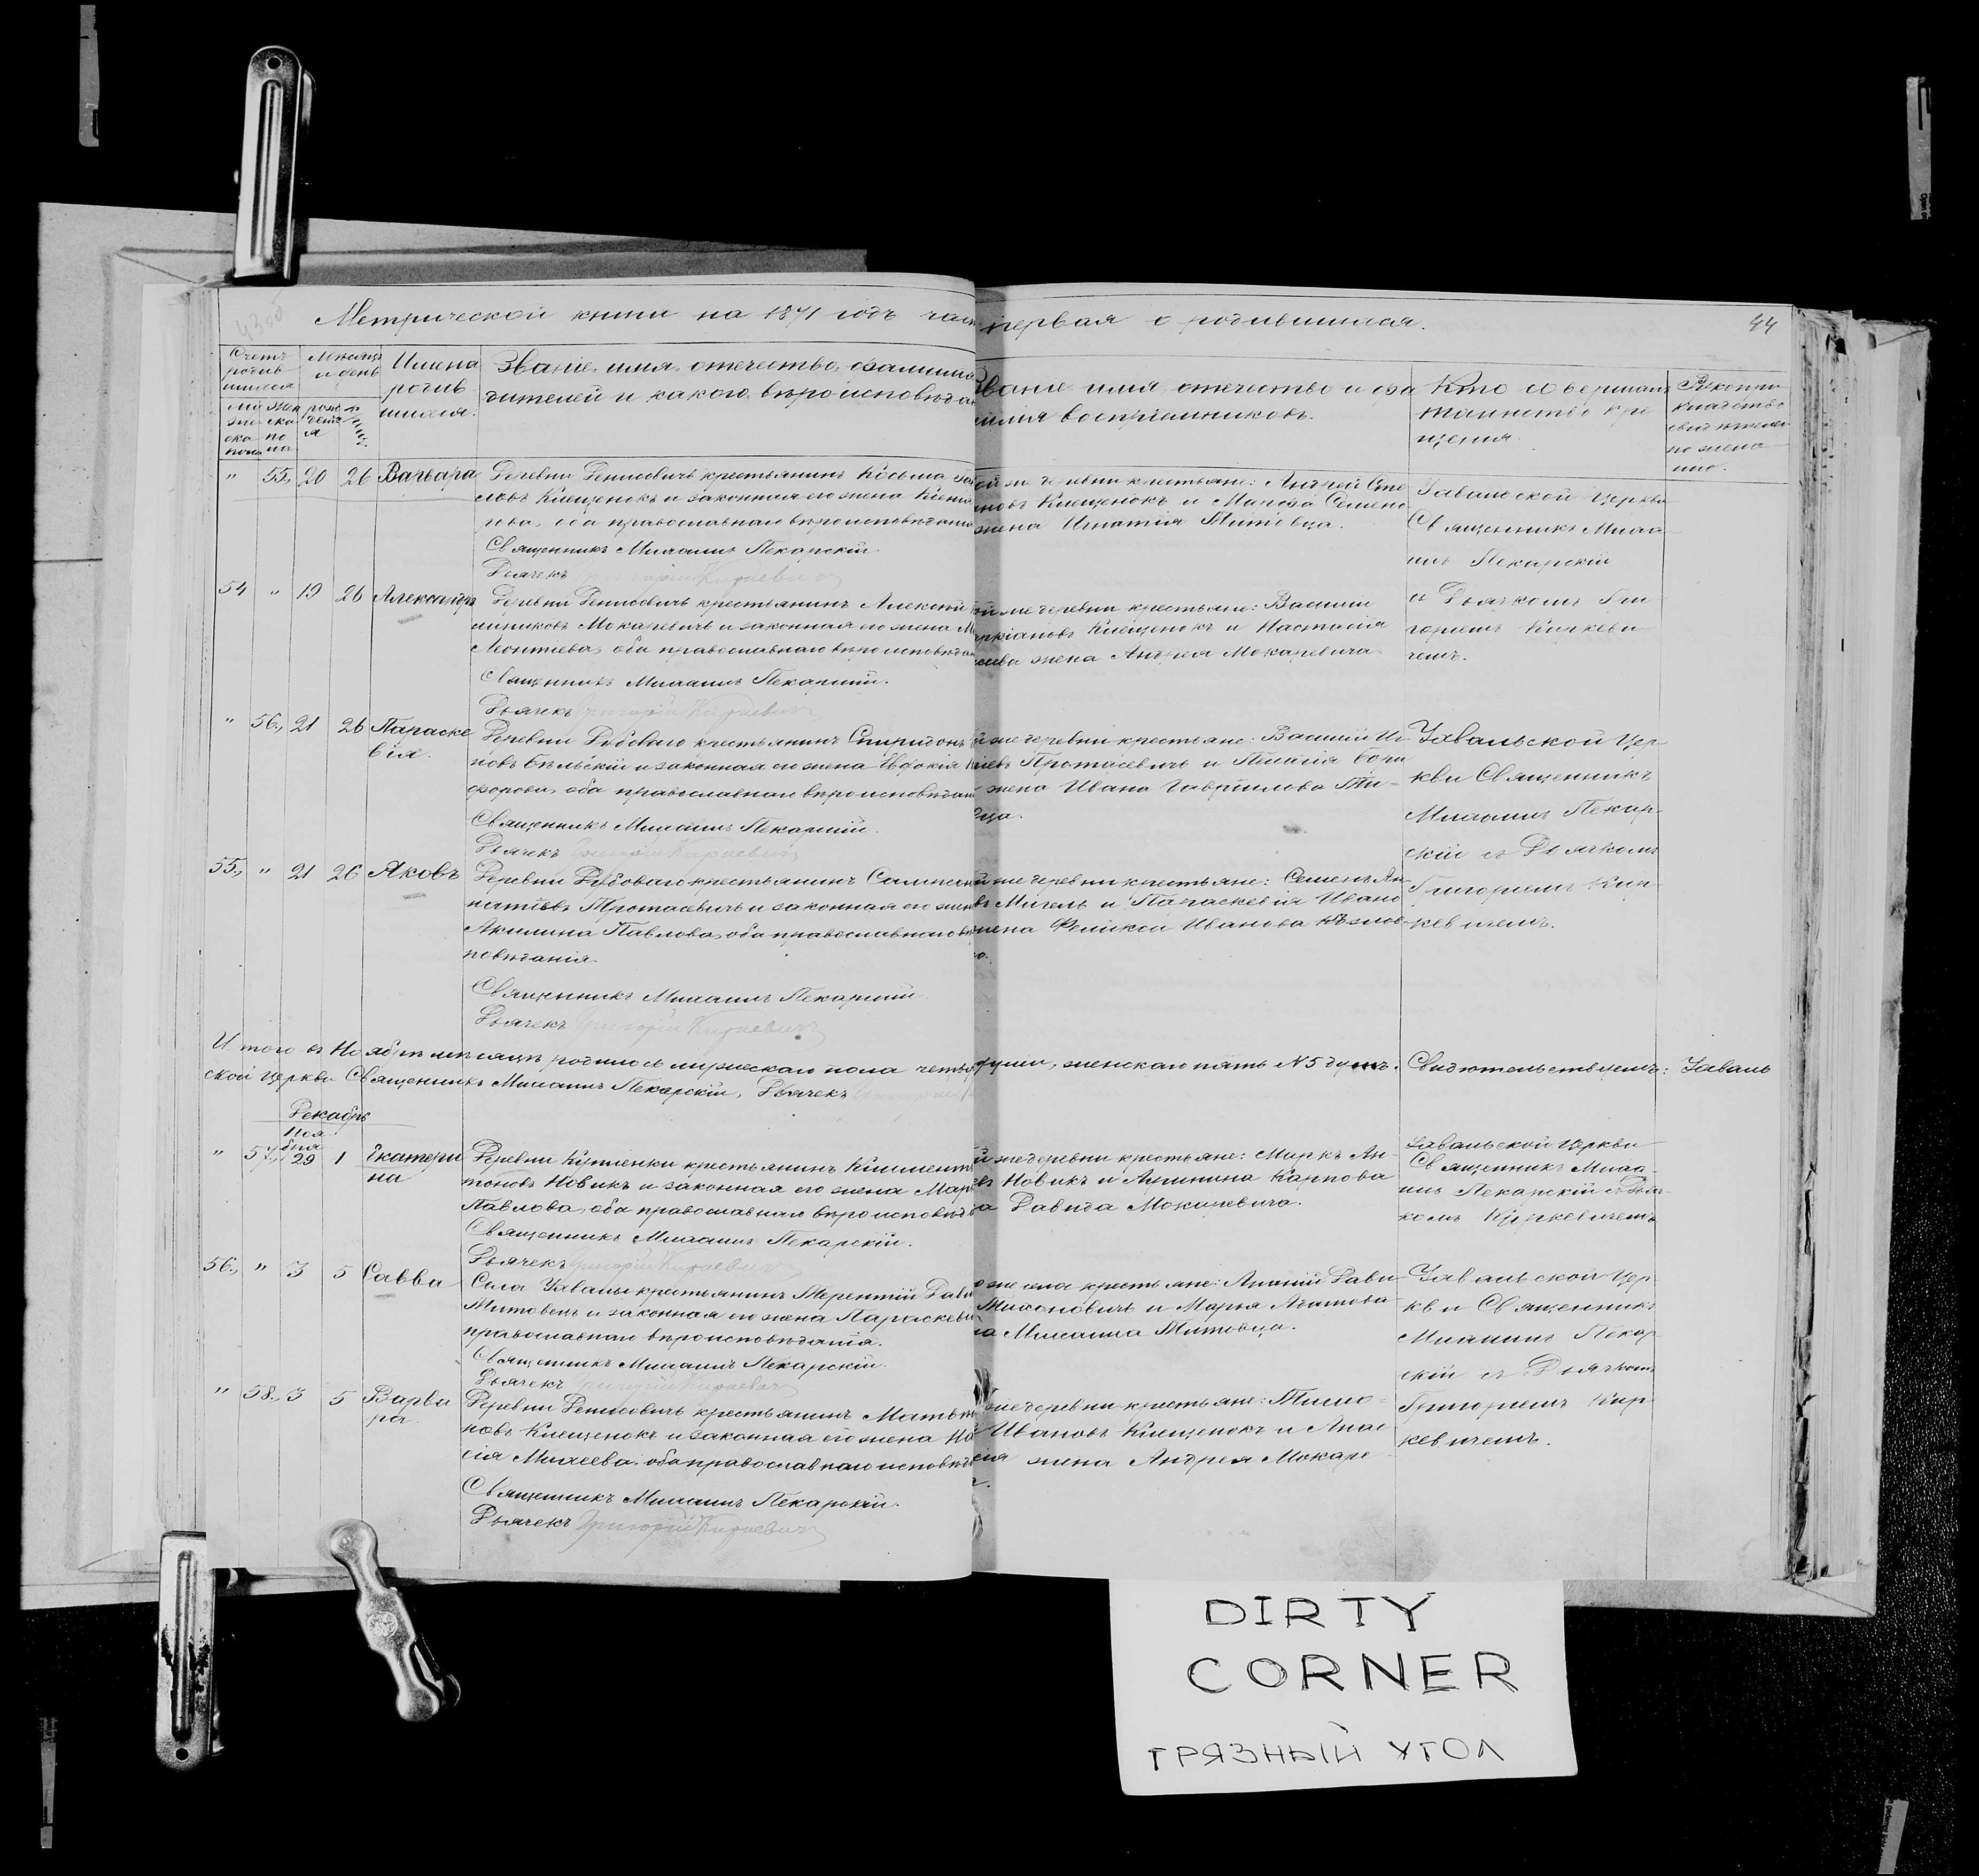 Метрической книги на 1871 годъ час первая о родившихся.
44
Счетъ родив шихся
Мѣсяцъ и день
Имена родив шихся.
Званіе, имя, отечество, фамилія
дителей и какого вѣроисповѣда
Званіе имя, отечество и фа
милія воспріемниковъ.
Кто совершалъ
таинство кре
щенія.
Рукопри
кладство
свидѣтелей
по жела
нію.
" 55, 20 26 Варвара
Деревни Денисовичъ крестьянинъ Косьма
ловъ Клещенокъ и законная его жена Ксенія
нва, оба православнаго вѣроисповѣданія
Священникъ Михаилъ Пекарскій
Дьячекъ Григорій Киркевичъ
ой же деревни крестьяне: Андрей Сте
ановъ Клещенокъ и Марфа Семено
жена Игнатія Титовца.
Завальской Церкви
Священникъ Миха
илъ Пекарскій
съ Дьячкомъ Гри
горіемъ Киркеви
чемъ.
54 " 19 26 Александръ
Деревни Денисовичъ крестьянинъ Алексѣй
Мокаревичъ и законная его жена М
Леонтіева, оба православнаго вѣроисповѣда
Священникъ Михаилъ Пекарскій.
Дьячекъ Григорій Киркевичъ
ой же деревни крестьяне: Василій
аркіановъ Клещенокъ и Настасія
сѣева жена Андрея Мокаревича
" 56, 21 26 Параске
вія.
Деревни Дубоваго крестьянинъ Спиридонъ
новъ Бѣльскій и законная его жена Евфокія
форова, оба православнаго вѣроисповѣдан
Священникъ Михаилъ Пекарскій.
Дьячекъ Григорій Киркевичъ
й же деревни крестьяне: Василій Иг
іевъ Протасевичъ и Пелагія
жена Ивана Гаврилова Ти-
ца.
Завальской Цер-
кви Священникъ
Михаилъ Пекар-
скій съ Дьячкомъ
Григоріемъ Кир-
кевичемъ.
55, " 21 26 Яковъ
Деревни Дубоваго крестьянинъ
Игнатіевъ Протасевичъ и законная его жен
Акилина Павлова, оба православнаго вѣ
повѣданія.
Священникъ Михаилъ Пекарскій
Дьячекъ Григорій Киркевичъ
й же деревни крестьяне: Семенъ
въ Мигель и Параскевія Ивано
жена Феликса Иванова
о.
Итого въ Ноябрѣ мѣсяцѣ родилось мужескаго пола четыр души, женскаго пять №5 душъ. Свидѣтельствуемъ: Заваль
ской Церкви Священникъ Михаилъ Пекарскій, Дьячекъ
Декабрь
Ноя
бря
" 57, 29 1 Екатери
на
Деревни крестьянинъ Климентъ
тоновъ Новикъ и законная его жена Мар
Павлова, оба православнаго вѣроисповѣд
Священникъ Михаилъ Пекарскій.
Дьячекъ Григорій Киркевичъ
й же деревни крестьяне: Маркъ Ан-
въ Новикъ и Акилина Карпова
а Давида Мокаревича.
Завальской Церкви
Священникъ Миха-
илъ Пекарскій съ Дья-
комъ Киркевичемъ
56, " 3 5 Савва
Села Заваль крестьянинъ Терентій Дави
Титовецъ и законная его жена Параскеві
православнаго вѣроисповѣданія.
Священникъ Михаилъ Пекарскій.
Дьячекъ Григорій Киркевичъ
о же села крестьяне: Дави-
Тихоновичъ и Марья Адамова
на Михаила Титовца.
Завальской Цер-
кви Священникъ
Михаилъ Пекар
скій съ Дьячкомъ
Григоріемъ Кир-
кевичемъ.
" 58, 3 5 Варва
ра
Деревни Денисовичъ крестьянинъ Матвѣй
новъ Клещенокъ и законная его жена
сія Михеева оба православнаго исповѣд
Священникъ Михаилъ Пекарскій.
Дьячекъ Григорій Киркевичъ
же деревни крестьяне: Тимо-
Ивановъ Клещенокъ и Анас
сія жена Андрея Мокаре
DIRTY
CORNER
ГРЯЗНЫЙ УГОЛ